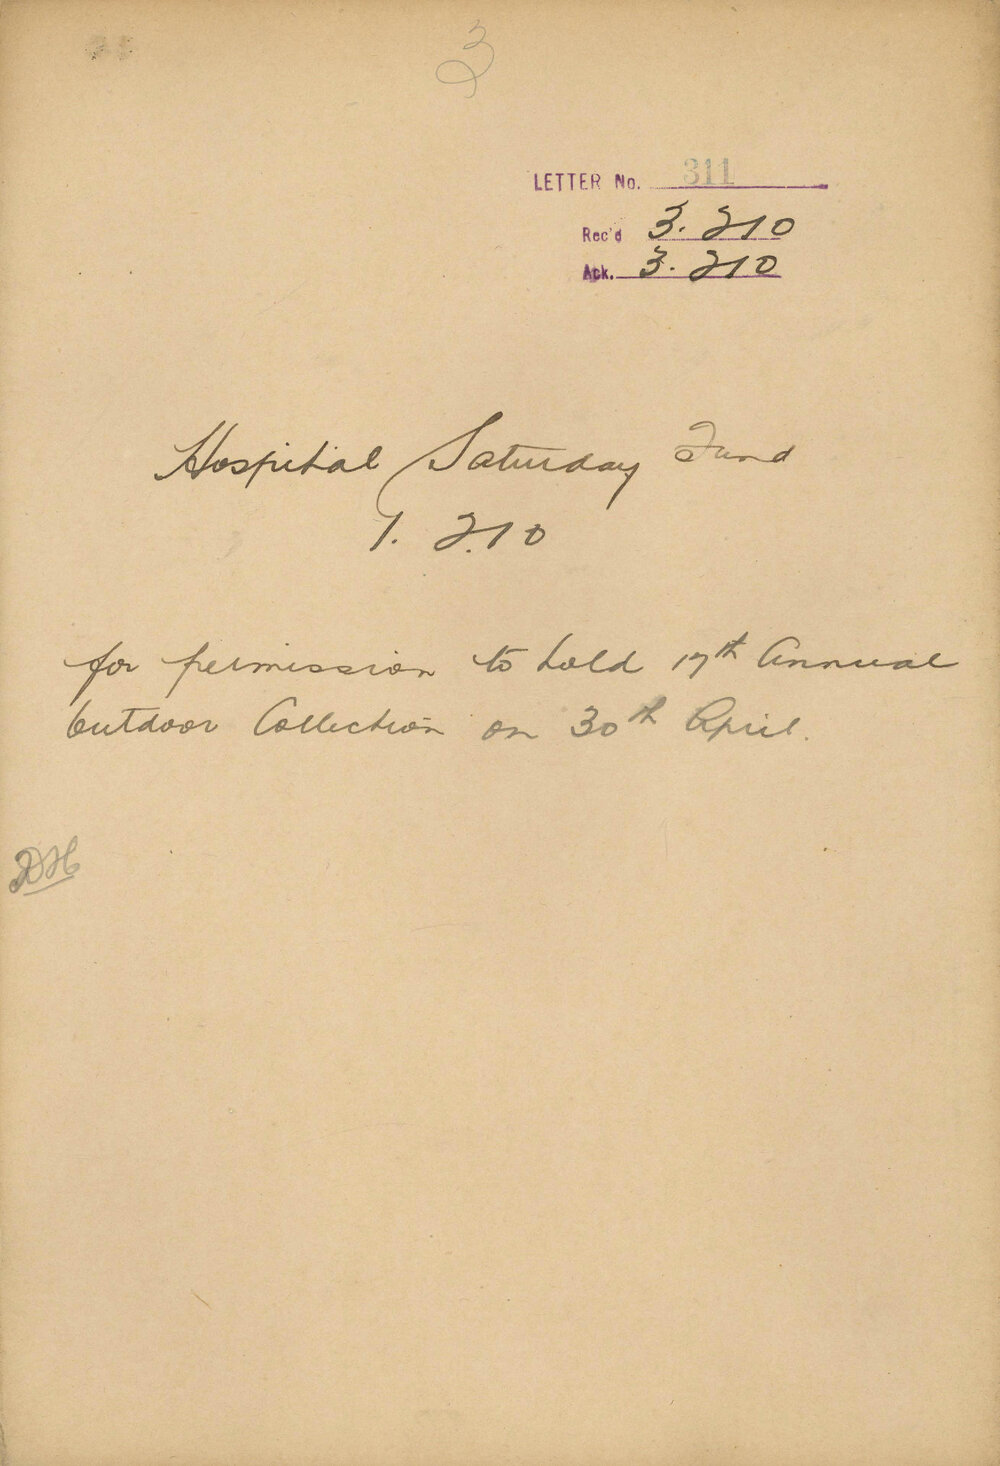 3
LETTER No. 311
Rec'd 3. 2 10
Ack. 3. 2 10
Hospital Saturday Fund
1. 2.10
for permission to hold 17th Annual
Outdoor Collection on 30th April.